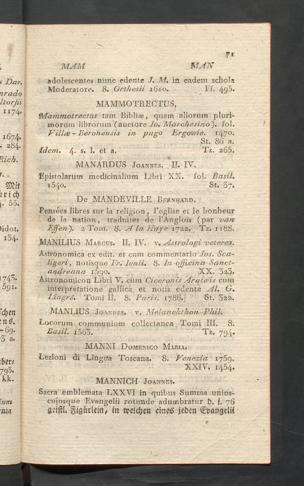 71
MAM MAN
adolescentes nunc edente J. M. in eadem schola
Moderatore. 8. Orthesii 1610. Pl. 495.
MAMMOTRECTUS,
Mammotrectus tam Bibliæ, quam aliorum pluri-
morum librorum (auctore Jo. Marchesino). fol.
Villæ-Beronensis in pago Ergowie. 1470.
St. 86 a.
Idem. 4. s. l. et a. Tz. 265.
MANARDUS Joannes. II. IV.
Epistolarum medicinalium Libri XX. fol. Basil.
1540. St. 57.
De MANDEVILLE Bernhard.
Pensées libres sur la religion, l'eglise et le bonheur
de la nation, traduites de l'Anglois (par van
Effen). 2 Tom. 8. A la Haye 1722. Tz. 1188.
MANILIUS Marcus. II. IV. v. Astrologi veteres.
Astronomica ex edit. et cum commentario Jos. Sca-
ligeri, notisque Fr. Junii. 8. Ex officina Sanct-
andreana 1590. XX. 323.
Astronomicon Libri V. cum Ciceronis Arateis cum
interpretatione gallica et notis edente Al. G.
Lingré. Tomi II. 8. Paris. 1786. St. 322.
MANLIUS Joannes. v. Melanchthon Phil.
Locorum communium collectanea Tomi III. 8.
Basil. 1563. Tz. 794.
MANNI Domenico Maria.
Lezioni di Lingua Toscana. 8. Venezia 1759.
XXIV. 1454.
MANNICH Joannes.
Sacra emblemata LXXVI in quibus Summa unius-
cujusque Evangelii rotunde adumbratur d. i. 76
geistl. Figürlein, in welchen eines jeden Evangelii